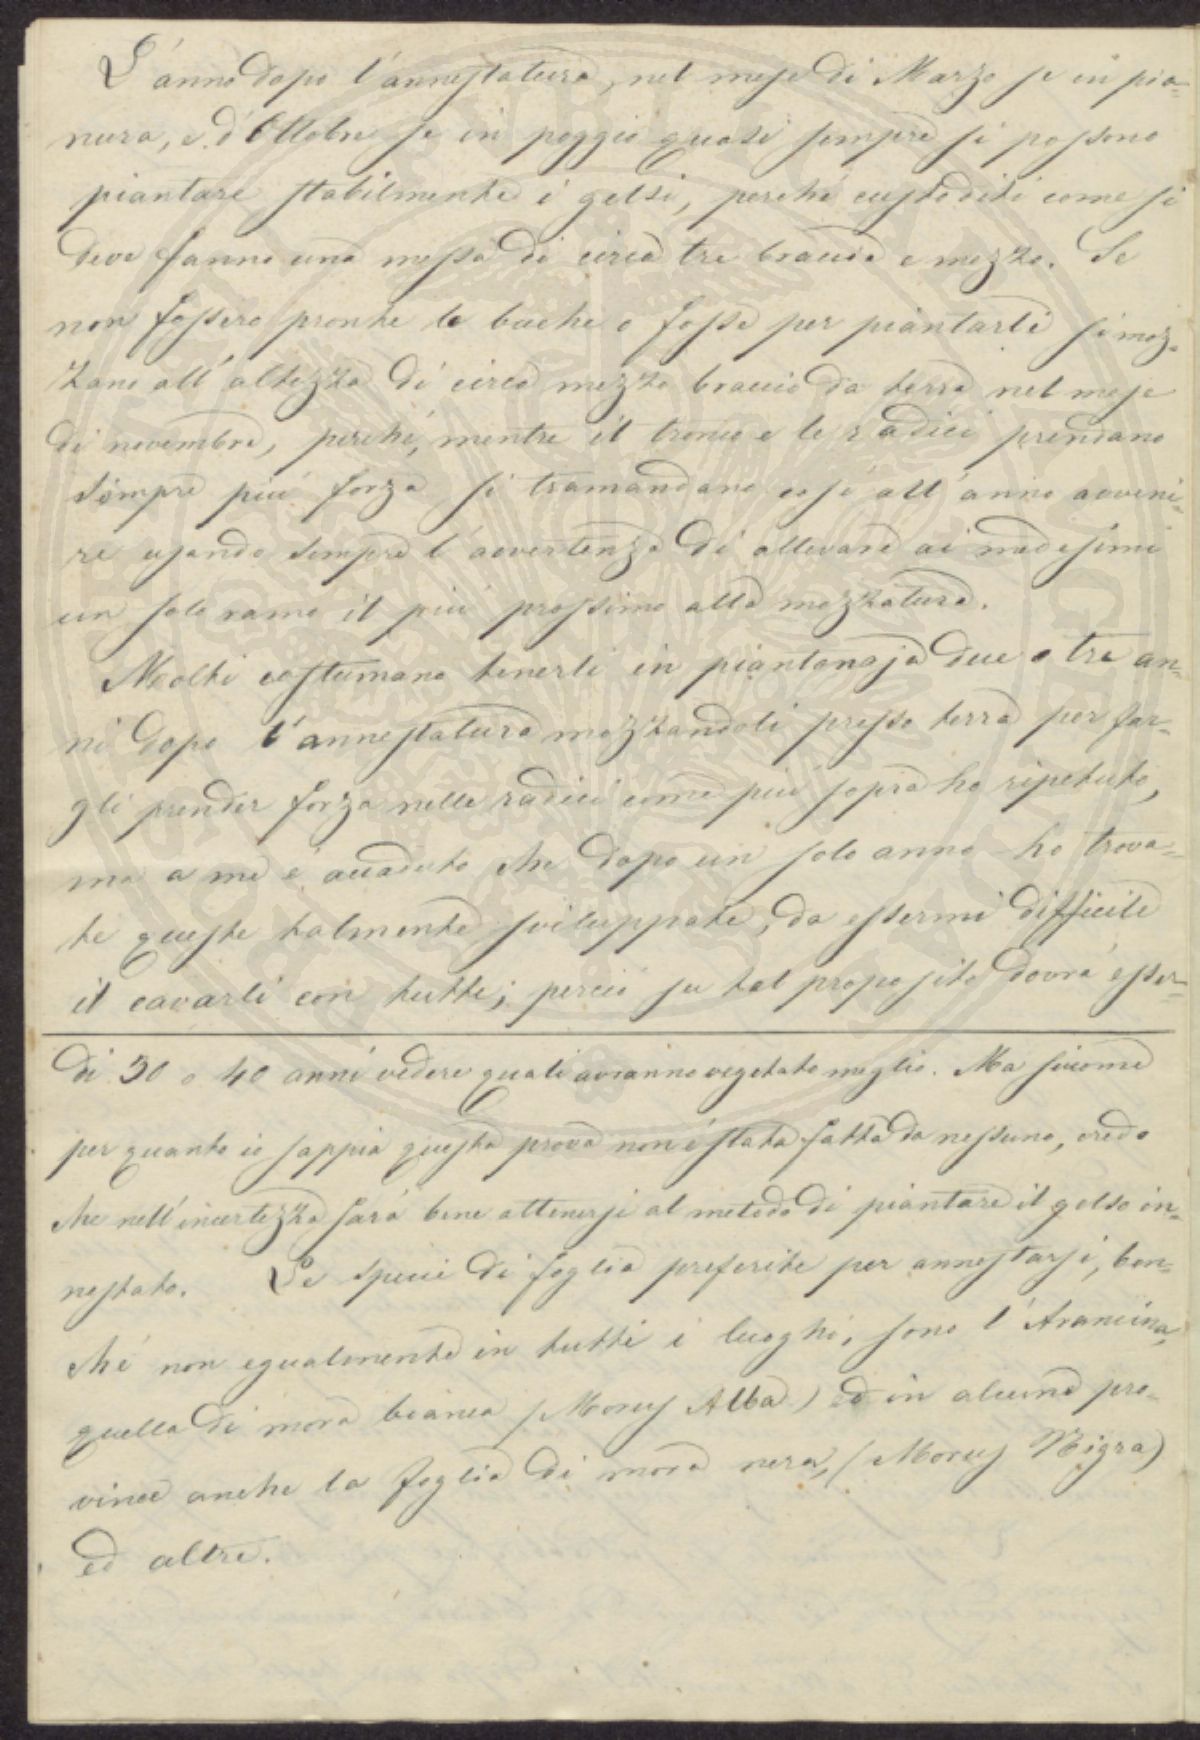 L'anno dopo l'annestatura, nel mese di Marzo se in pia=
nura, e d'Ottobre se in poggio quasi sempre si possono
piantare stabilmente i gelsi, perché custoditi come si
deve fanno una messa di circa tre braccia e mezzo. Se
non fossero pronte le buche o fosse per piantarli si moz=
zano all'altezza di circa mezzo braccio da terra nel mese
di novembre, perché, mentre il tronco e le radici prendano
sempre piú forza si tramandano cosí all'anno avveni=
re usando sempre l'avvertenza di allevare ai medesimi
un solo ramo il piú prossimo alla mozzatura.
Molti costumano tenerli in piantonaja due o tre an=
ni dopo l'annestatura mozzandoli presso terra per far=
gli prender forza nelle radici come piú sopra ho ripetuto,
ma a me é accaduto che dopo un solo anno ho trova=
te queste talmente sviluppate, da essermi difficile
il cavarli con tutte; perció su tal proposito dovrá esser=
di 30 o 40 anni vedere quali avranno vegetato meglio. Ma siccome
per quanto io sappia questa prova non é stata fatta da nessuno, credo
che nell'incertezza sará bene attenersi al metodo di piantare il gelso in=
nestato. Le specie di foglia preferite per annestarsi, ben=
ché non egualmente in tutti i luoghi, sono l'Arancina,
quella di mora bianca (Morus Alba) ed in alcune pro=
vince anche la foglia di mora nera, (Morus Nigra)
ed altre.